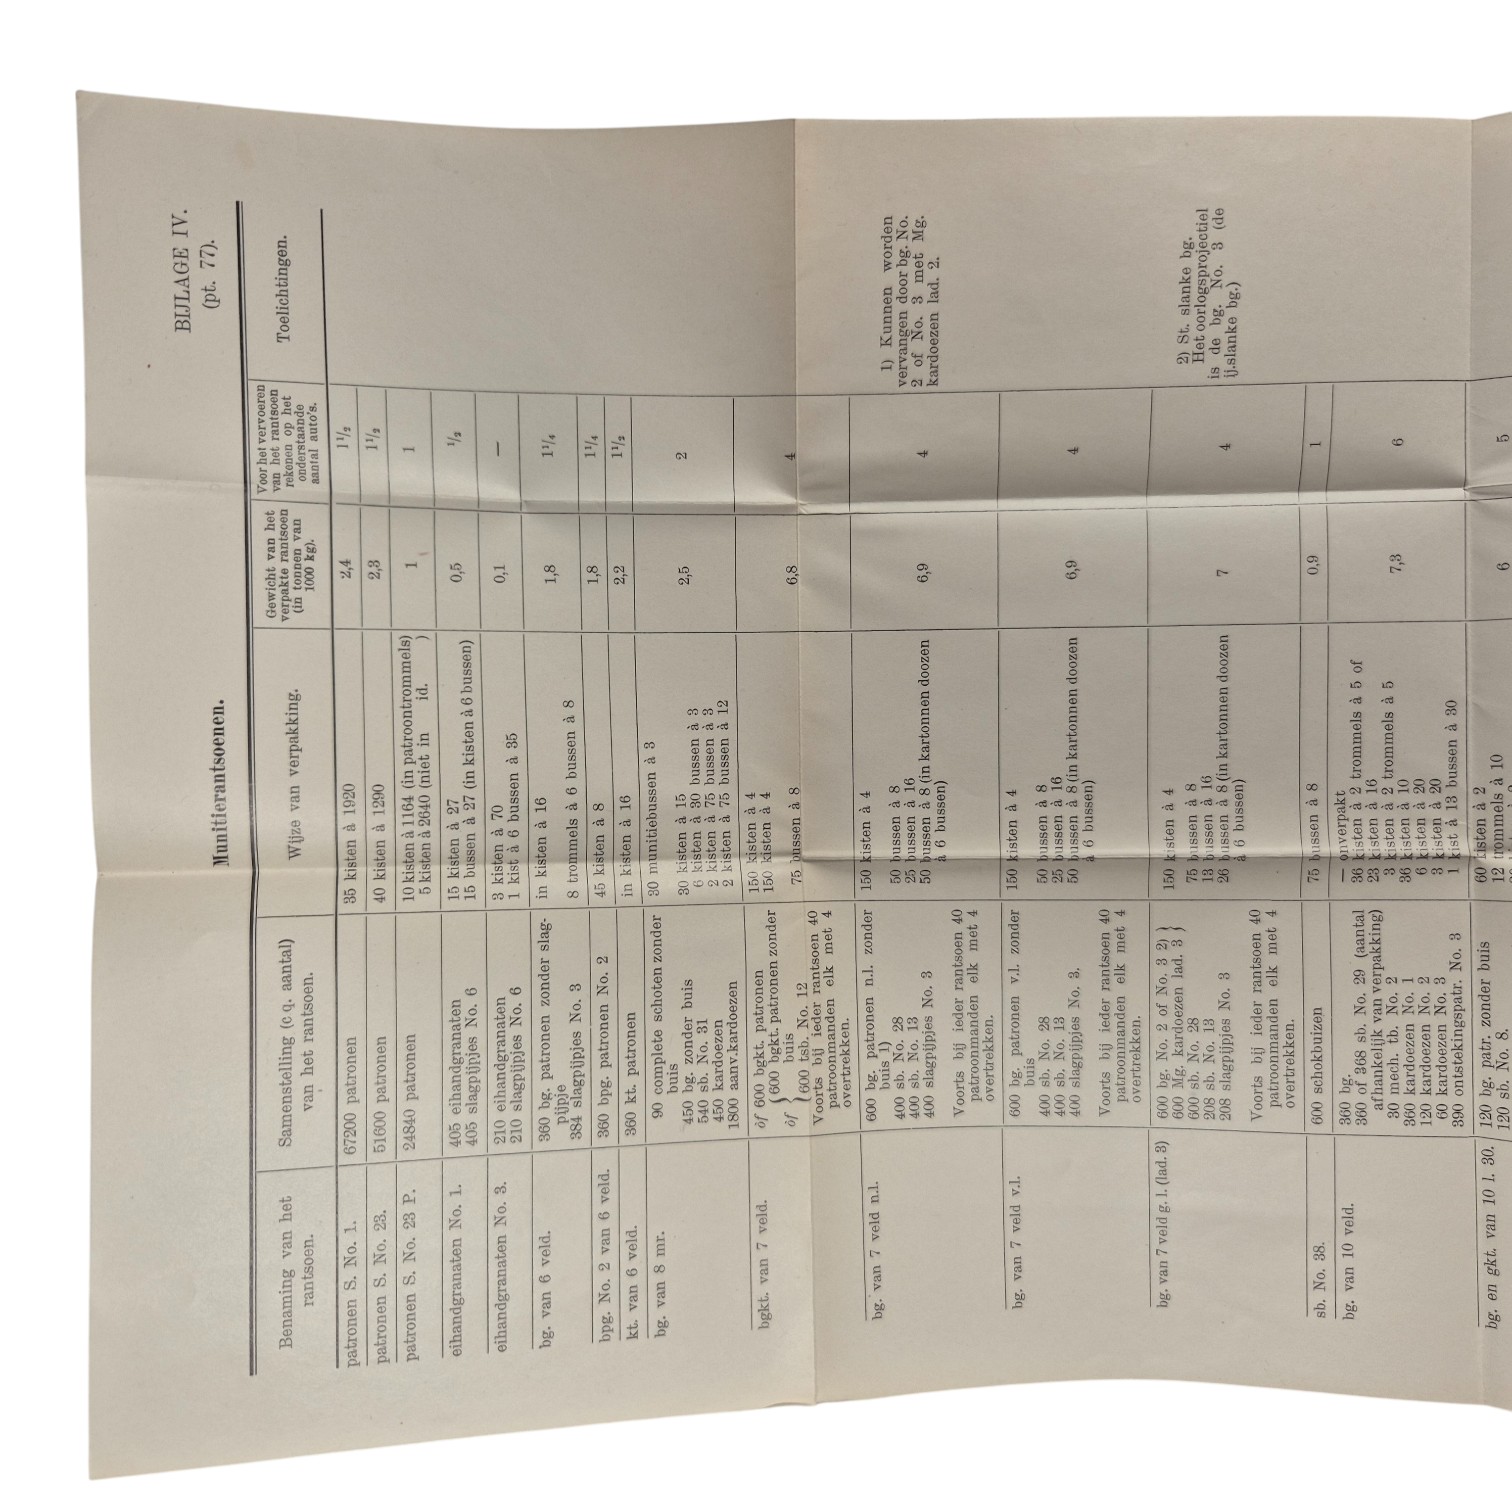 BIJLAGE IV.
(pt. 77).
Munitierantsoenen.
Benaming van het
rantsoen.
Samenstelling (c q. aantal)
van het rantsoen.
Wijze van verpakking.
Gewicht van het
verpakte rantsoen
(in tonnen van
1000 kg).
Voor het vervoeren
van het rantsoen
rekenen op het
onderstaande
aantal auto's.
Toelichtingen.
patronen S. No. 1. 67200 patronen 35 kisten à 1920 2,4 1½
patronen S. No. 23. 51600 patronen 40 kisten à 1290 2,3 1½
patronen S. No. 23 P. 24840 patronen 10 kisten à 1164 (in patroontrommels) 1 1
5 kisten à 2640 (niet in id. )
eihandgranaten No. 1. 405 eihandgranaten 15 kisten à 27 0,5 ½
405 slagpijpjes No. 6 15 bussen à 27 (in kisten à 6 bussen)
eihandgranaten No. 3. 210 eihandgranaten 3 kisten à 70 0,1 —
210 slagpijpjes No. 6 1 kist à 6 bussen à 35
bg. van 6 veld. 360 bg. patronen zonder slag- in kisten à 16 1,8 1¼
pijpje
384 slagpijpjes No. 3 8 trommels à 6 bussen à 8
bpg. No. 2 van 6 veld. 360 bpg. patronen No. 2 45 kisten à 8 1,8 1¼
kt. van 6 veld. 360 kt. patronen in kisten à 16 2,2 1½
bg. van 8 mr. 90 complete schoten zonder 30 munitiebussen à 3 2,5 2
buis
450 bg. zonder buis 30 kisten à 15
540 sb. No. 31 6 kisten à 30 bussen à 3
450 kardoezen 2 kisten à 75 bussen à 3
1800 aanv.kardoezen 2 kisten à 75 bussen à 12
bgkt. van 7 veld. òf 600 bgkt. patronen 150 kisten à 4 6,8 4
òf { 600 bgkt. patronen zonder 150 kisten à 4
buis
600 tsb. No. 12 75 bussen à 8
Voorts bij ieder rantsoen 40
patroonmanden elk met 4
overtrekken.
bg. van 7 veld n.l. 600 bg. patronen n.l. zonder 150 kisten à 4 6,9 4
buis 1)
400 sb. No. 28 50 bussen à 8
400 sb. No. 13 25 bussen à 16
400 slagpijpjes No. 3 50 bussen à 8 (in kartonnen doozen
à 6 bussen)
Voorts bij ieder rantsoen 40
patroonmanden elk met 4
overtrekken.
1) Kunnen worden
vervangen door bg. No.
2 of No. 3 met Mg.
kardoezen lad. 2.
bg. van 7 veld v.l. 600 bg. patronen v.l. zonder 150 kisten à 4 6,9 4
buis
400 sb. No. 28 50 bussen à 8
400 sb. No. 13 25 bussen à 16
400 slagpijpjes No. 3. 50 bussen à 8 (in kartonnen doozen
à 6 bussen)
Voorts bij ieder rantsoen 40
patroonmanden elk met 4
overtrekken.
bg. van 7 veld g. l. (lad. 3) 600 bg. No. 2 of No. 3 2) } 150 kisten à 4 7 4
600 Mg. kardoezen lad. 3 }
600 sb. No. 28 75 bussen à 8
208 sb. No. 13 13 bussen à 16
208 slagpijpjes No. 3 26 bussen à 8 (in kartonnen doozen
à 6 bussen)
Voorts bij ieder rantsoen 40
patroonmanden elk met 4
overtrekken.
2) St. slanke bg.
Het oorlogsprojectiel
is de bg. No. 3 (de
ij.slanke bg.)
sb. No. 38. 600 schokbuizen 75 bussen à 8 0,9 1
bg. van 10 veld. 360 bg. — onverpakt 7,3 6
360 of 368 sb. No. 29 (aantal 36 kisten à 2 trommels à 5 of
afhankelijk van verpakking) 23 kisten à 16
30 mech. tb. No. 2 3 kisten à 2 trommels à 5
360 kardoezen No. 1 36 kisten à 10
120 kardoezen No. 2 6 kisten à 20
60 kardoezen No. 3 3 kisten à 20
390 ontstekingspatr. No. 3 1 kist à 13 bussen à 30
bg. en gkt. van 10 l. 30. 120 bg. patr. zonder buis 60 kisten à 2 6 5
120 sb. No. 8. 12 trommels à 10